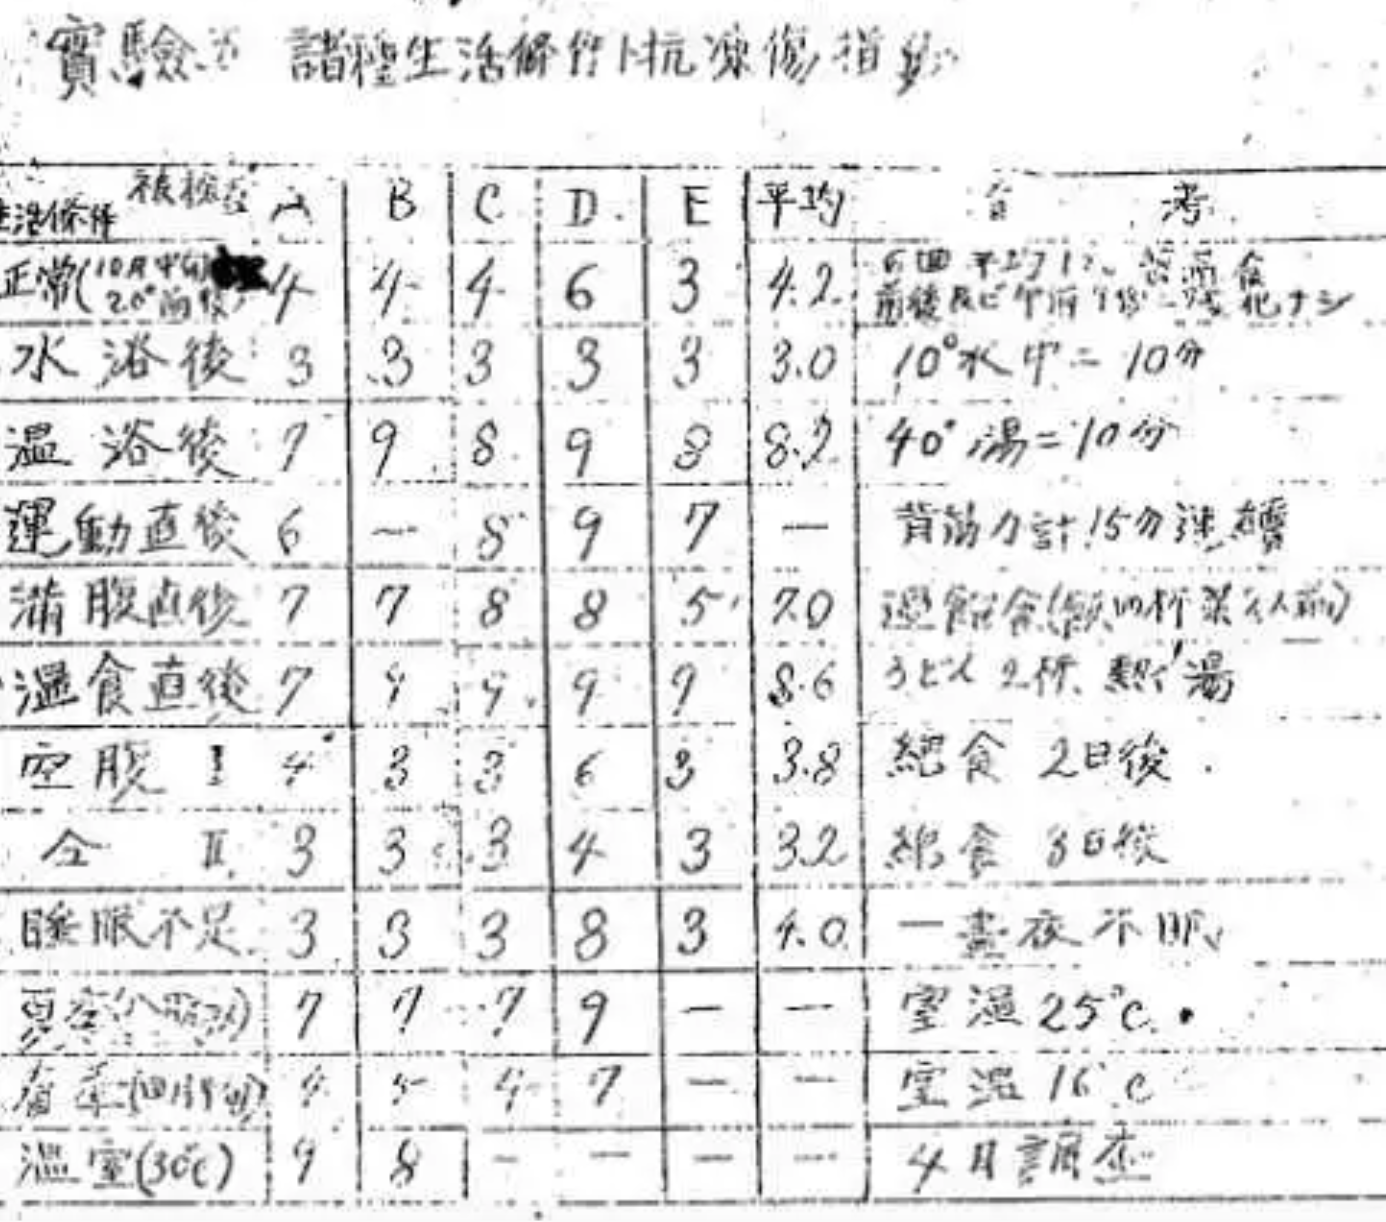 實驗 諸種生活條件ト抗凍傷指数
被検者 生活條件 A B C D E 平均 備考
正常(10月中旬 20°前後) 4 4 4 6 3 4.2 平均 前後及ビ 変化ナシ
水浴後 3 3 3 3 3 3.0 10°水中ニ10分
温浴後 7 9 8 9 8 8.2 40°湯ニ10分
運動直後 6 — 8 9 7 — 背筋力計15分連續
満腹直後 7 7 8 8 5 7.0
温食直後 7 9 9 9 9 8.6 うどん2杯、熱イ湯
空腹 I 4 3 3 6 3 3.8 絶食 2日後
仝 II 3 3 3 4 3 3.2 絶食 3日後
睡眠不足 3 3 3 8 3 4.0 一晝夜不眠
7 7 7 9 — — 室温25°C
(四月中旬) 4 4 7 — — 室温16°C
温室(30°C) 9 8 — — — — 4月調査